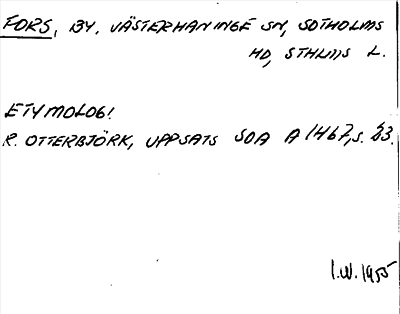 FORS, BY. VÄSTERHANINGE SN, SOTHOLMS
HD, STHLMS L.
ETYMOLOGI
R. OTTERBJÖRK, UPPSATS SOA A 1467, s.
I.W. 1955